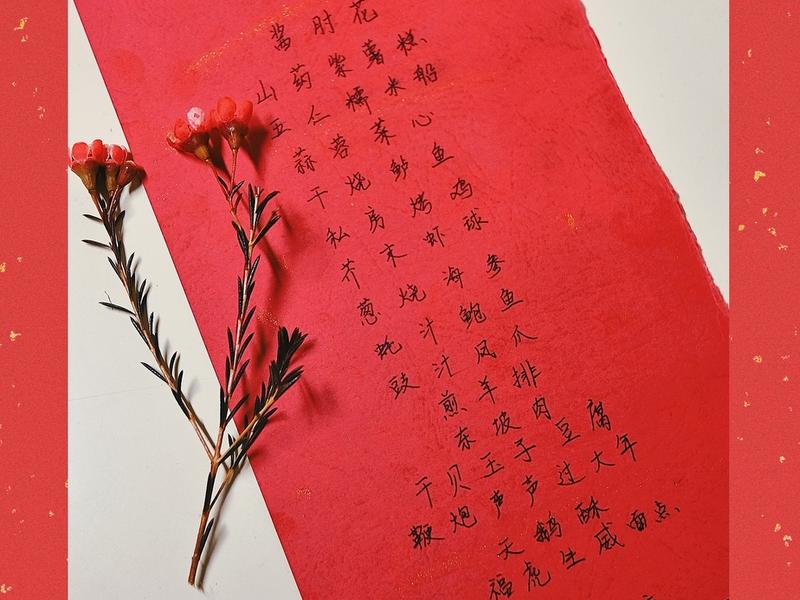 酱肘花
山药紫薯糕、
五仁糯米船
蒜蓉菜心
干烧鲈鱼
私房烤鸡
芥末虾球
葱烧海参
蚝汁鲍鱼
豉汁凤爪
煎羊排
东坡肉
干贝玉子豆腐
鞭炮声声过大年
天鹅酥
福虎生威面点、